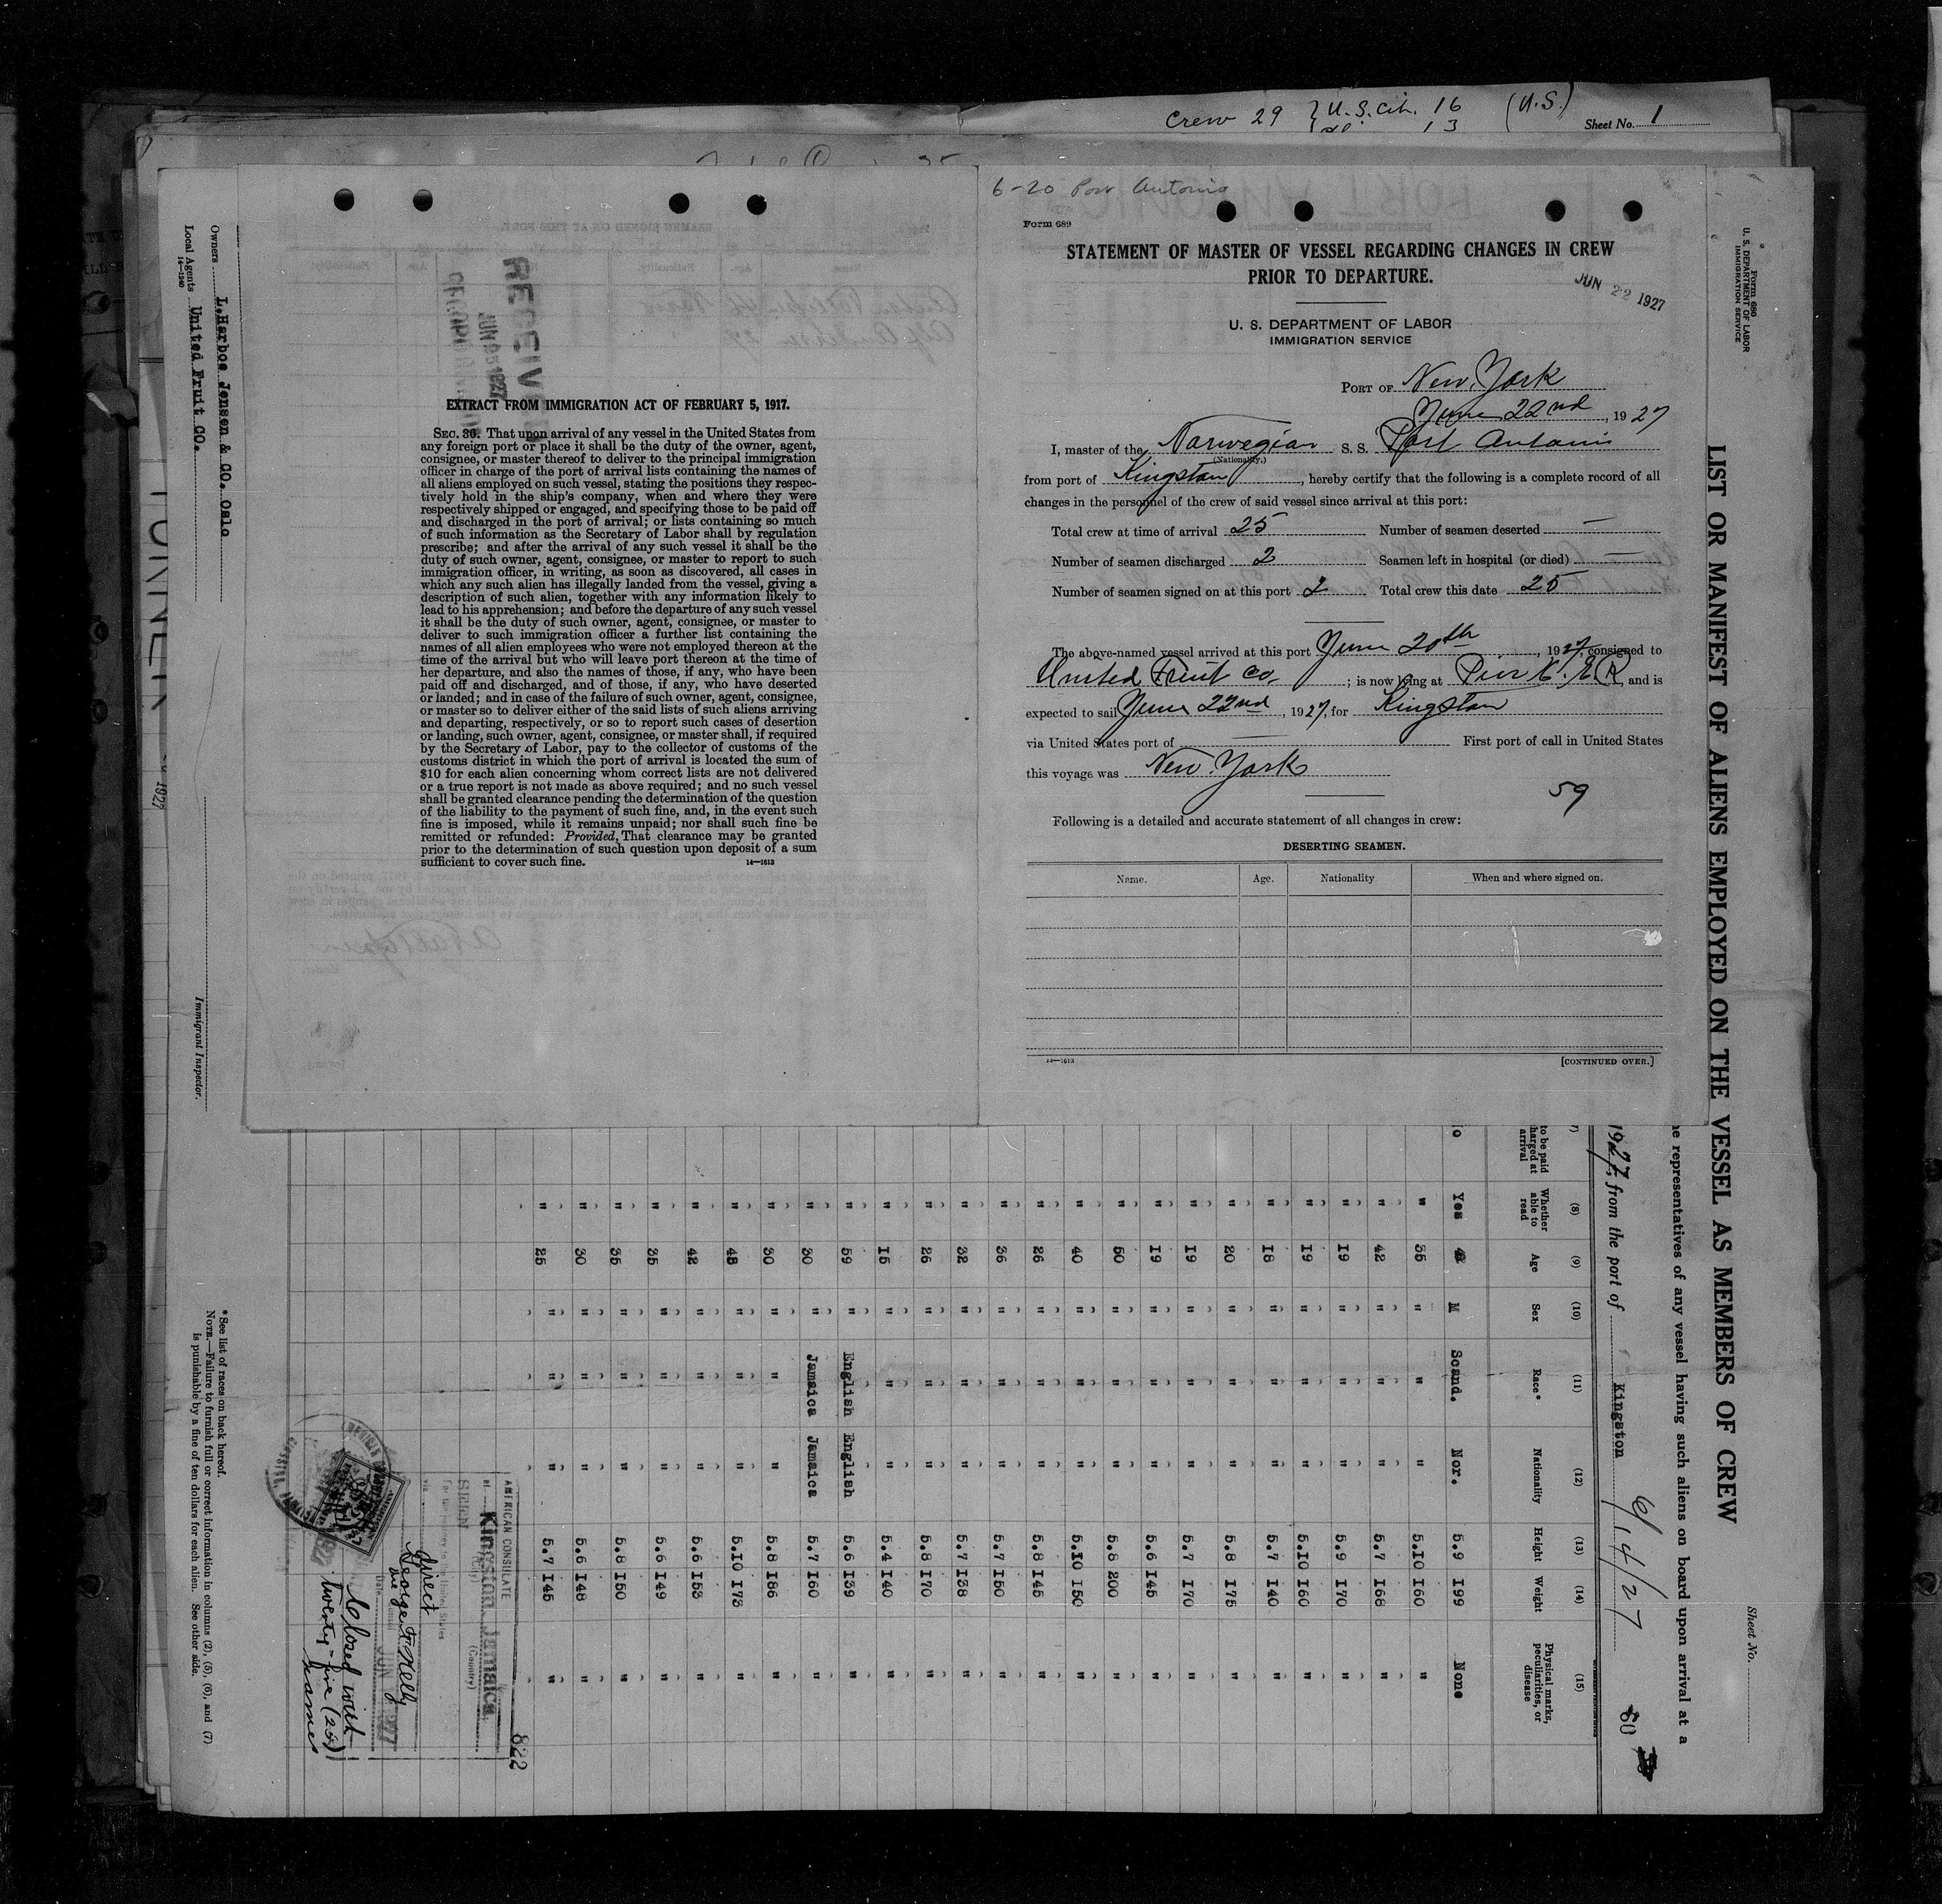 Crew 29 { U.S. Cit. 16 (U.S.)
13
Sheet No. 1
6-20 Port Antonio
Form 689
STATEMENT OF MASTER OF VESSEL REGARDING CHANGES IN CREW
PRIOR TO DEPARTURE.
JUN 22 1927
U. S. DEPARTMENT OF LABOR
IMMIGRATION SERVICE
PORT OF New York
June 22nd, 1927
I, master of the Norwegian S. S. Port Antonio
(Nationality.)
from port of Kingston, hereby certify that the following is a complete record of all
changes in the personnel of the crew of said vessel since arrival at this port:
Total crew at time of arrival 25 Number of seamen deserted —
Number of seamen discharged 2 Seamen left in hospital (or died) —
Number of seamen signed on at this port 2 Total crew this date 25
The above-named vessel arrived at this port June 20th, 1927, consigned to
United Fruit Co.; is now lying at Pier 6. E R, and is
expected to sail June 22nd, 1927, for Kingston
via United States port of — First port of call in United States
this voyage was New York
59
Following is a detailed and accurate statement of all changes in crew:
DESERTING SEAMEN.
Name. Age. Nationality When and where signed on.
14—1613 [CONTINUED OVER.]
RECEIVED
JUN 25 1927
EXTRACT FROM IMMIGRATION ACT OF FEBRUARY 5, 1917.
SEC. 36. That upon arrival of any vessel in the United States from
any foreign port or place it shall be the duty of the owner, agent,
consignee, or master thereof to deliver to the principal immigration
officer in charge of the port of arrival lists containing the names of
all aliens employed on such vessel, stating the positions they respec-
tively hold in the ship's company, when and where they were
respectively shipped or engaged, and specifying those to be paid off
and discharged in the port of arrival; or lists containing so much
of such information as the Secretary of Labor shall by regulation
prescribe; and after the arrival of any such vessel it shall be the
duty of such owner, agent, consignee, or master to report to such
immigration officer, in writing, as soon as discovered, all cases in
which any such alien has illegally landed from the vessel, giving a
description of such alien, together with any information likely to
lead to his apprehension; and before the departure of any such vessel
it shall be the duty of such owner, agent, consignee, or master to
deliver to such immigration officer a further list containing the
names of all alien employees who were not employed thereon at the
time of the arrival but who will leave port thereon at the time of
her departure, and also the names of those, if any, who have been
paid off and discharged, and of those, if any, who have deserted
or landed; and in case of the failure of such owner, agent, consignee,
or master so to deliver either of the said lists of such aliens arriving
and departing, respectively, or so to report such cases of desertion
or landing, such owner, agent, consignee, or master shall, if required
by the Secretary of Labor, pay to the collector of customs of the
customs district in which the port of arrival is located the sum of
$10 for each alien concerning whom correct lists are not delivered
or a true report is not made as above required; and no such vessel
shall be granted clearance pending the determination of the question
of the liability to the payment of such fine, and, in the event such
fine is imposed, while it remains unpaid; nor shall such fine be
remitted or refunded: Provided, That clearance may be granted
prior to the determination of such question upon deposit of a sum
sufficient to cover such fine. 14—1613
Form 680
U. S. DEPARTMENT OF LABOR
IMMIGRATION SERVICE
Sheet No.
LIST OR MANIFEST OF ALIENS EMPLOYED ON THE VESSEL AS MEMBERS OF CREW
representatives of any vessel having such aliens on board upon arrival at a
1927, from the port of Kingston 6/14/27
60
(8) (9) (10) (11) (12) (13) (14) (15)
to be paid
arrival
Whether able to read Age Sex Race* Nationality Height Weight Physical marks, peculiarities, or disease
Yes M Scand. Nor. 5.9 199 None
" 35 " " " 5.10 160 "
" 42 " " " 5.7 168 "
" 19 " " " 5.9 170 "
" 19 " " " 5.10 160 "
" 18 " " " 5.7 140 "
" 20 " " " 5.8 175 "
" 19 " " " 5.7 170 "
" 19 " " " 5.6 145 "
" 50 " " " 5.8 200 "
" 40 " " " 5.10 150 "
" 26 " " " 5.8 145 "
" 36 " " " 5.7 150 "
" 32 " " " 5.7 138 "
" 26 " " " 5.8 170 "
" 15 " " " 5.4 140 "
" 59 " English English 5.6 139 "
" 30 " Jamaica Jamaica 5.7 160 "
" 30 " " " 5.8 186 "
" 48 " " " 5.10 173 "
" 42 " " " 5.6 153 "
" 35 " " " 5.6 149 "
" 35 " " " 5.8 150 "
" 30 " " " 5.6 148 "
" 25 " " " 5.7 145 "
822
AMERICAN CONSULATE
at Kingston, Jamaica
(City) (Country)
SEEN
For the journey to the United States
via direct
George F Kelly
Date JUN 1927
Closed with
twenty-five (25)
names
Owners L. Harboe Jensen & CO. Oslo
Local Agents United Fruit CO.
14—1240
Immigrant Inspector.
*See list of races on back hereof.
NOTE.—Failure to furnish full or correct information in columns (2), (5), (6), and (7)
is punishable by a fine of ten dollars for each alien. See other side.